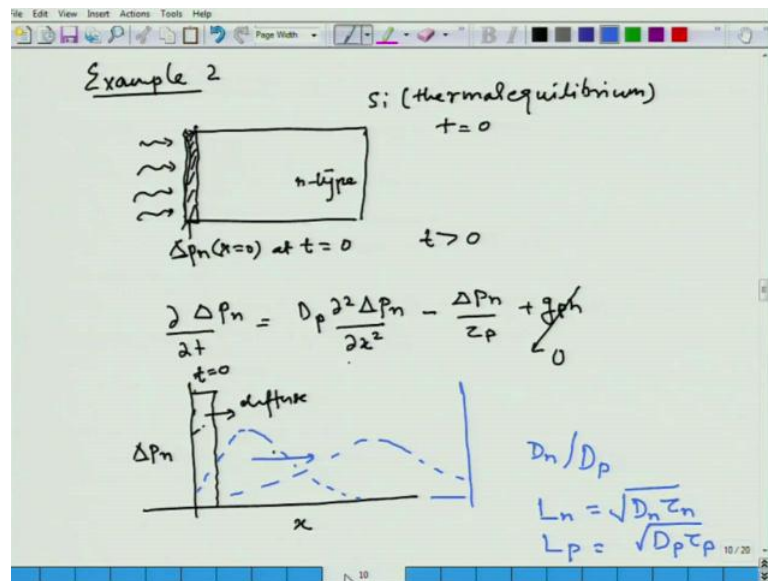 File Edit View Insert Actions Tools Help
Page Width
B I
Example 2
Si (thermal equilibrium)
t = 0
n-type
Δpn(x=0) at t = 0
t > 0
∂ΔPn/∂t = Dp ∂²ΔPn/∂x² - ΔPn/τp + gph
0
t=0
diffuse
ΔPn
x
Dn/Dp
Ln = √Dnτn
Lp = √Dpτp
10 / 20
10